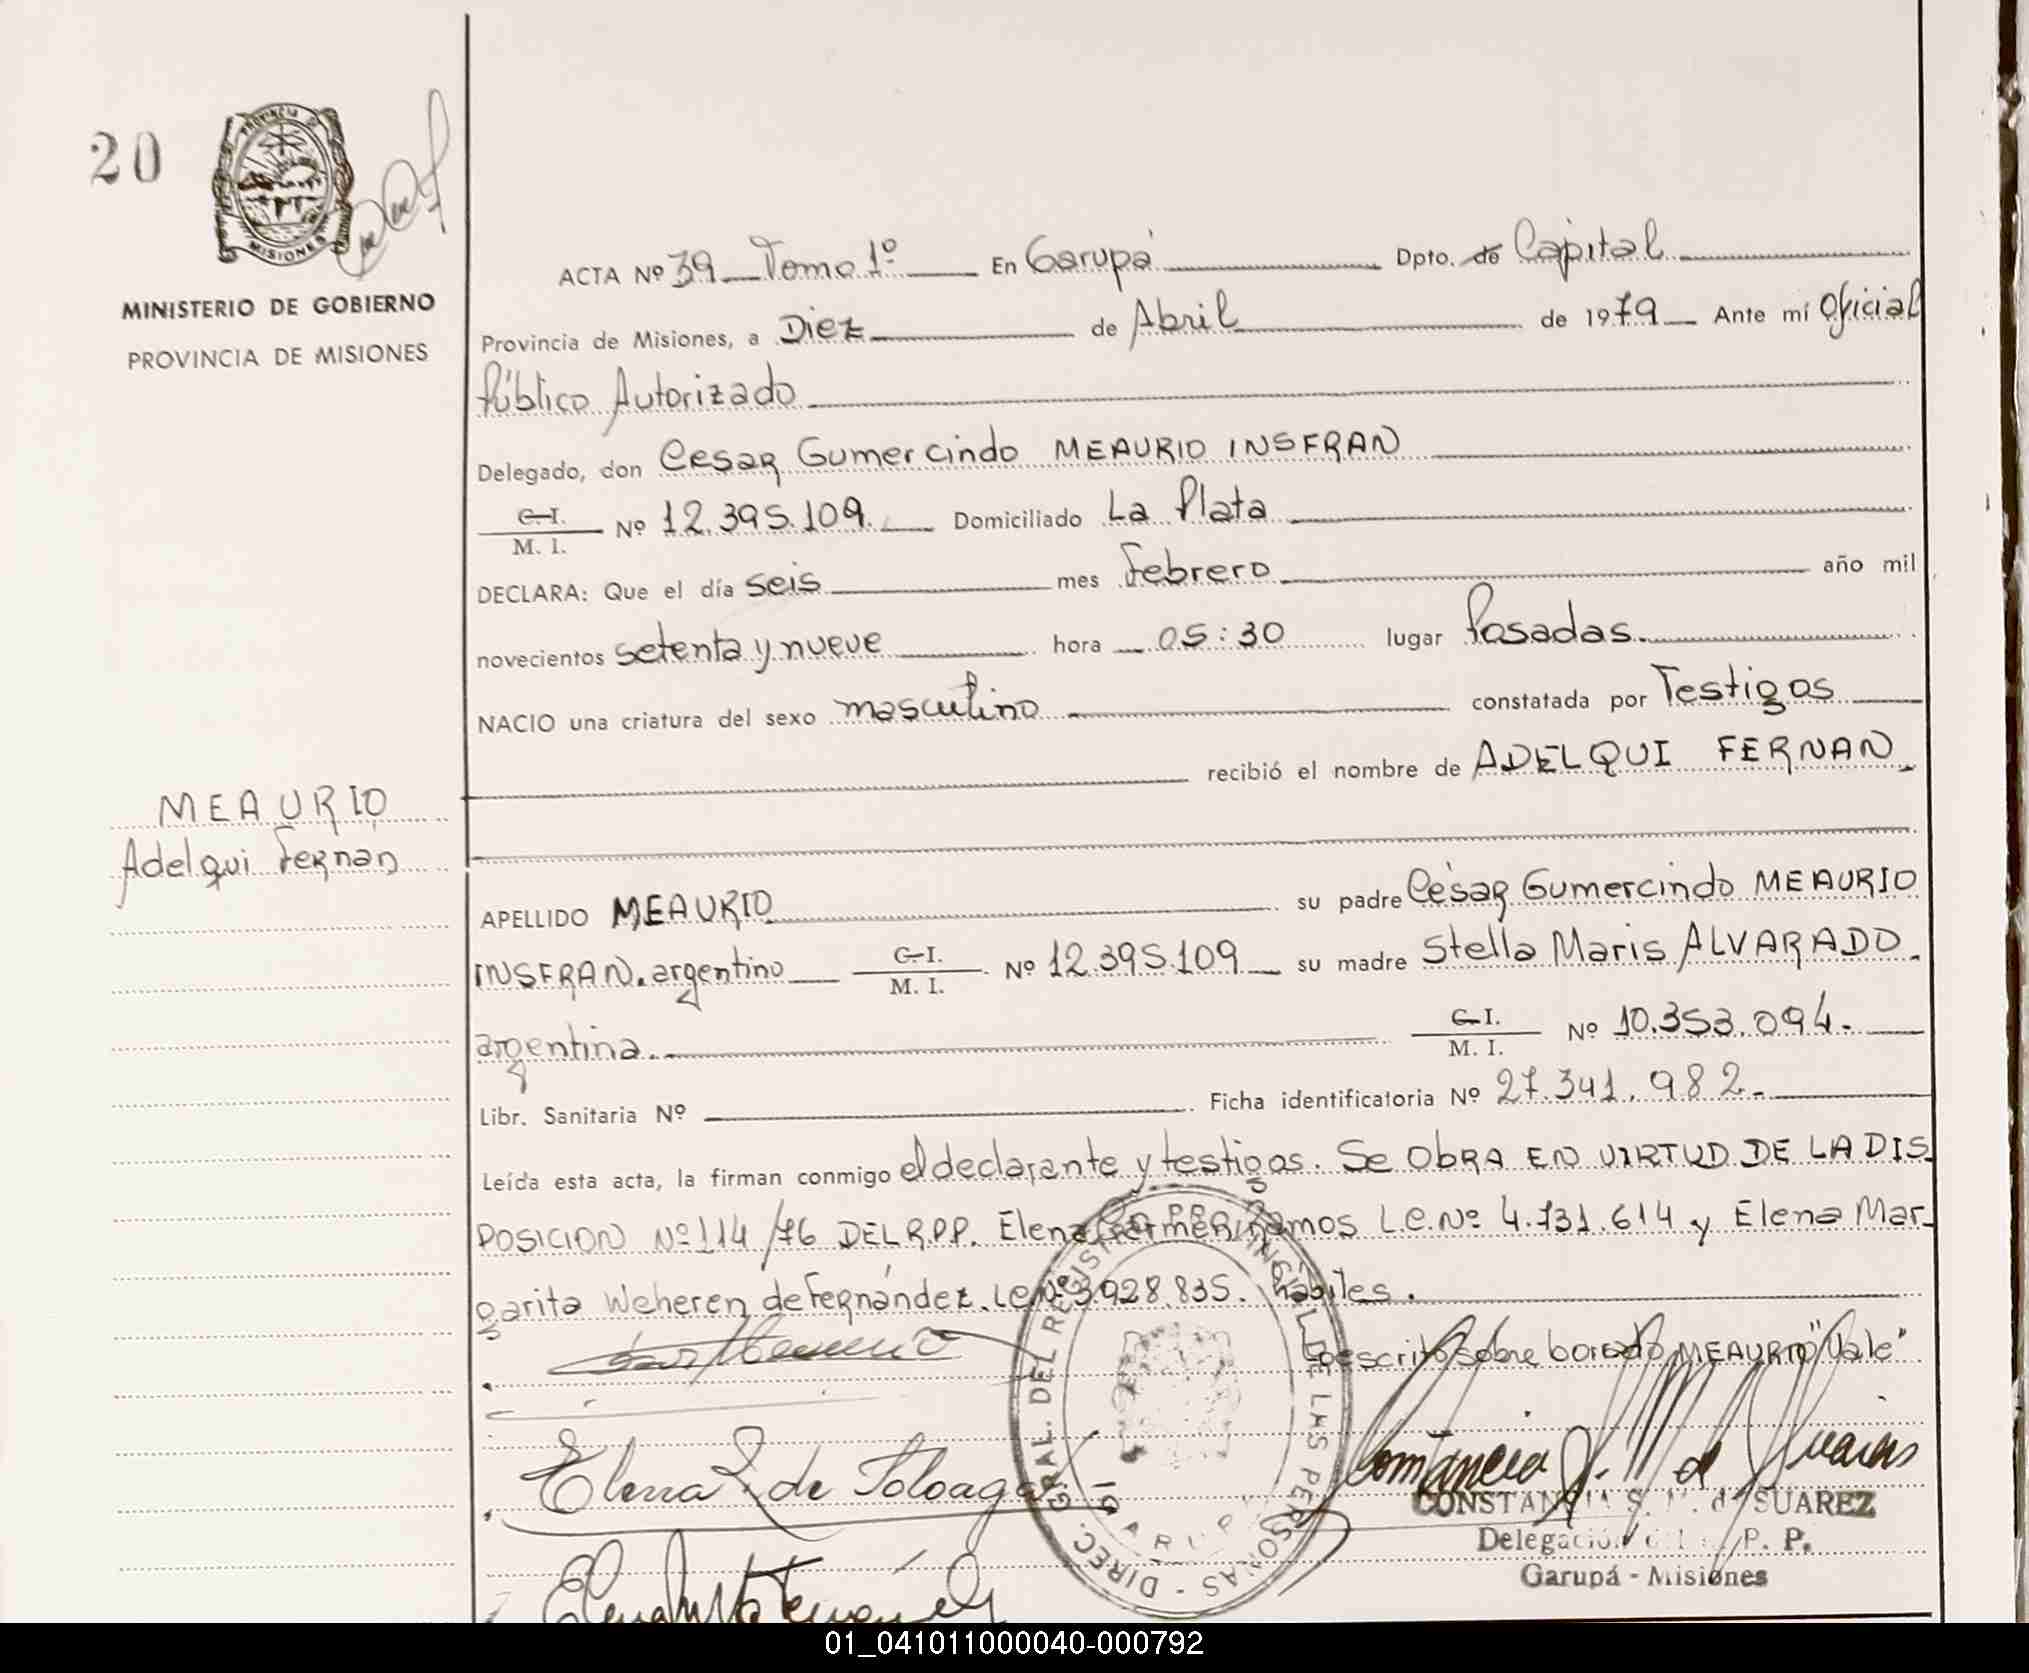 20
PROVINCIA DE
MISIONES
MINISTERIO DE GOBIERNO
PROVINCIA DE MISIONES
ACTA Nº 39 Tomo 1º En Garupá Dpto. de Capital
Provincia de Misiones, a Diez de Abril de 1979 Ante mí Oficial
Público Autorizado
Delegado, don Cesar Gumercindo MEAURIO INSFRAN
C.I.
M. I. Nº 12.395.109. Domiciliado La Plata
DECLARA: Que el día seis mes Febrero año mil
novecientos setenta y nueve hora 05:30 lugar Posadas.
NACIO una criatura del sexo masculino constatada por Testigos
recibió el nombre de ADELQUI FERNAN
MEAURIO
Adelqui Fernan
APELLIDO MEAURIO su padre César Gumercindo MEAURIO
INSFRAN. argentino C.I. M. I. Nº 12.395.109 su madre Stella Maris ALVARADO.
argentina. C.I. M. I. Nº 10.353.094.
Libr. Sanitaria Nº Ficha identificatoria Nº 27.341.982.
Leída esta acta, la firman conmigo el declarante y testigos. Se ObRA EN VIRTUD DE LA DIS
POSICION Nº 114/76 DEL R.P.P. Elena Ramos L.C. Nº 4.731.614 y Elena Mar-
garita Weheren de Fernández. LC Nº 3.928.835. hábiles.
sobre borrado MEAURIO "Vale"
DIREC. GRAL. DEL REGISTRO PROVINCIAL DE LAS PERSONAS
GARUPA
Elena R. de Toloaga
Constancia S. M. de Suarez
CONSTANCIA S. M. de SUAREZ
Delegación del R. P. P.
Garupá - Misiones
01_041011000040-000792